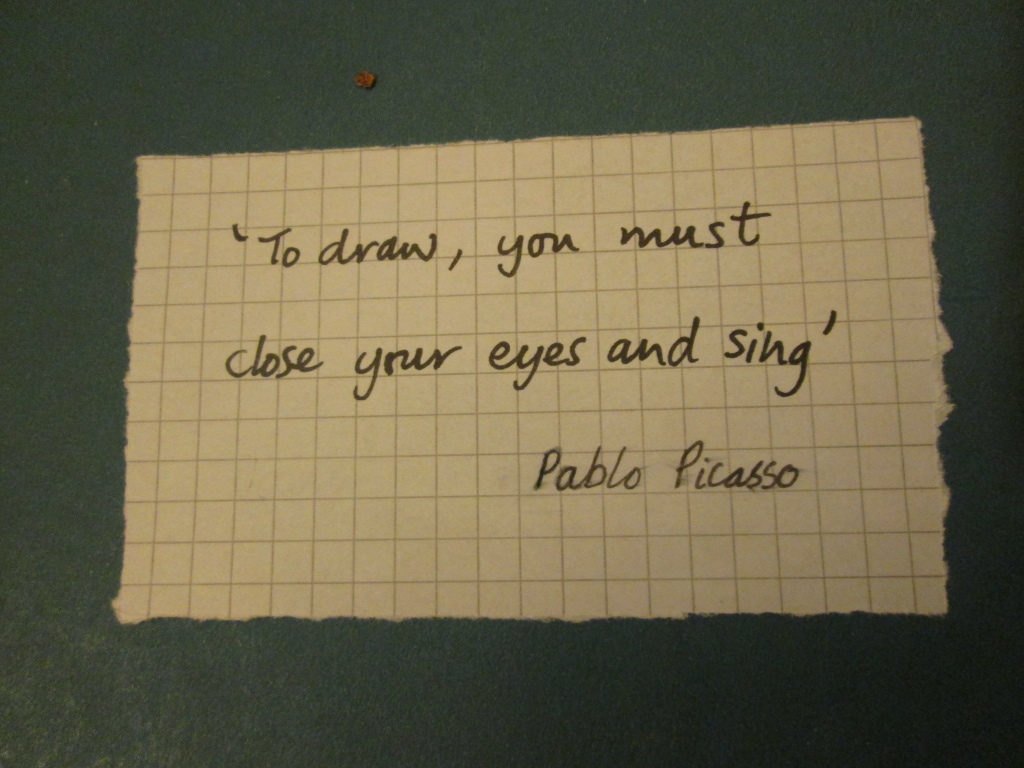 'To draw, you must
close your eyes and sing'
Pablo Picasso